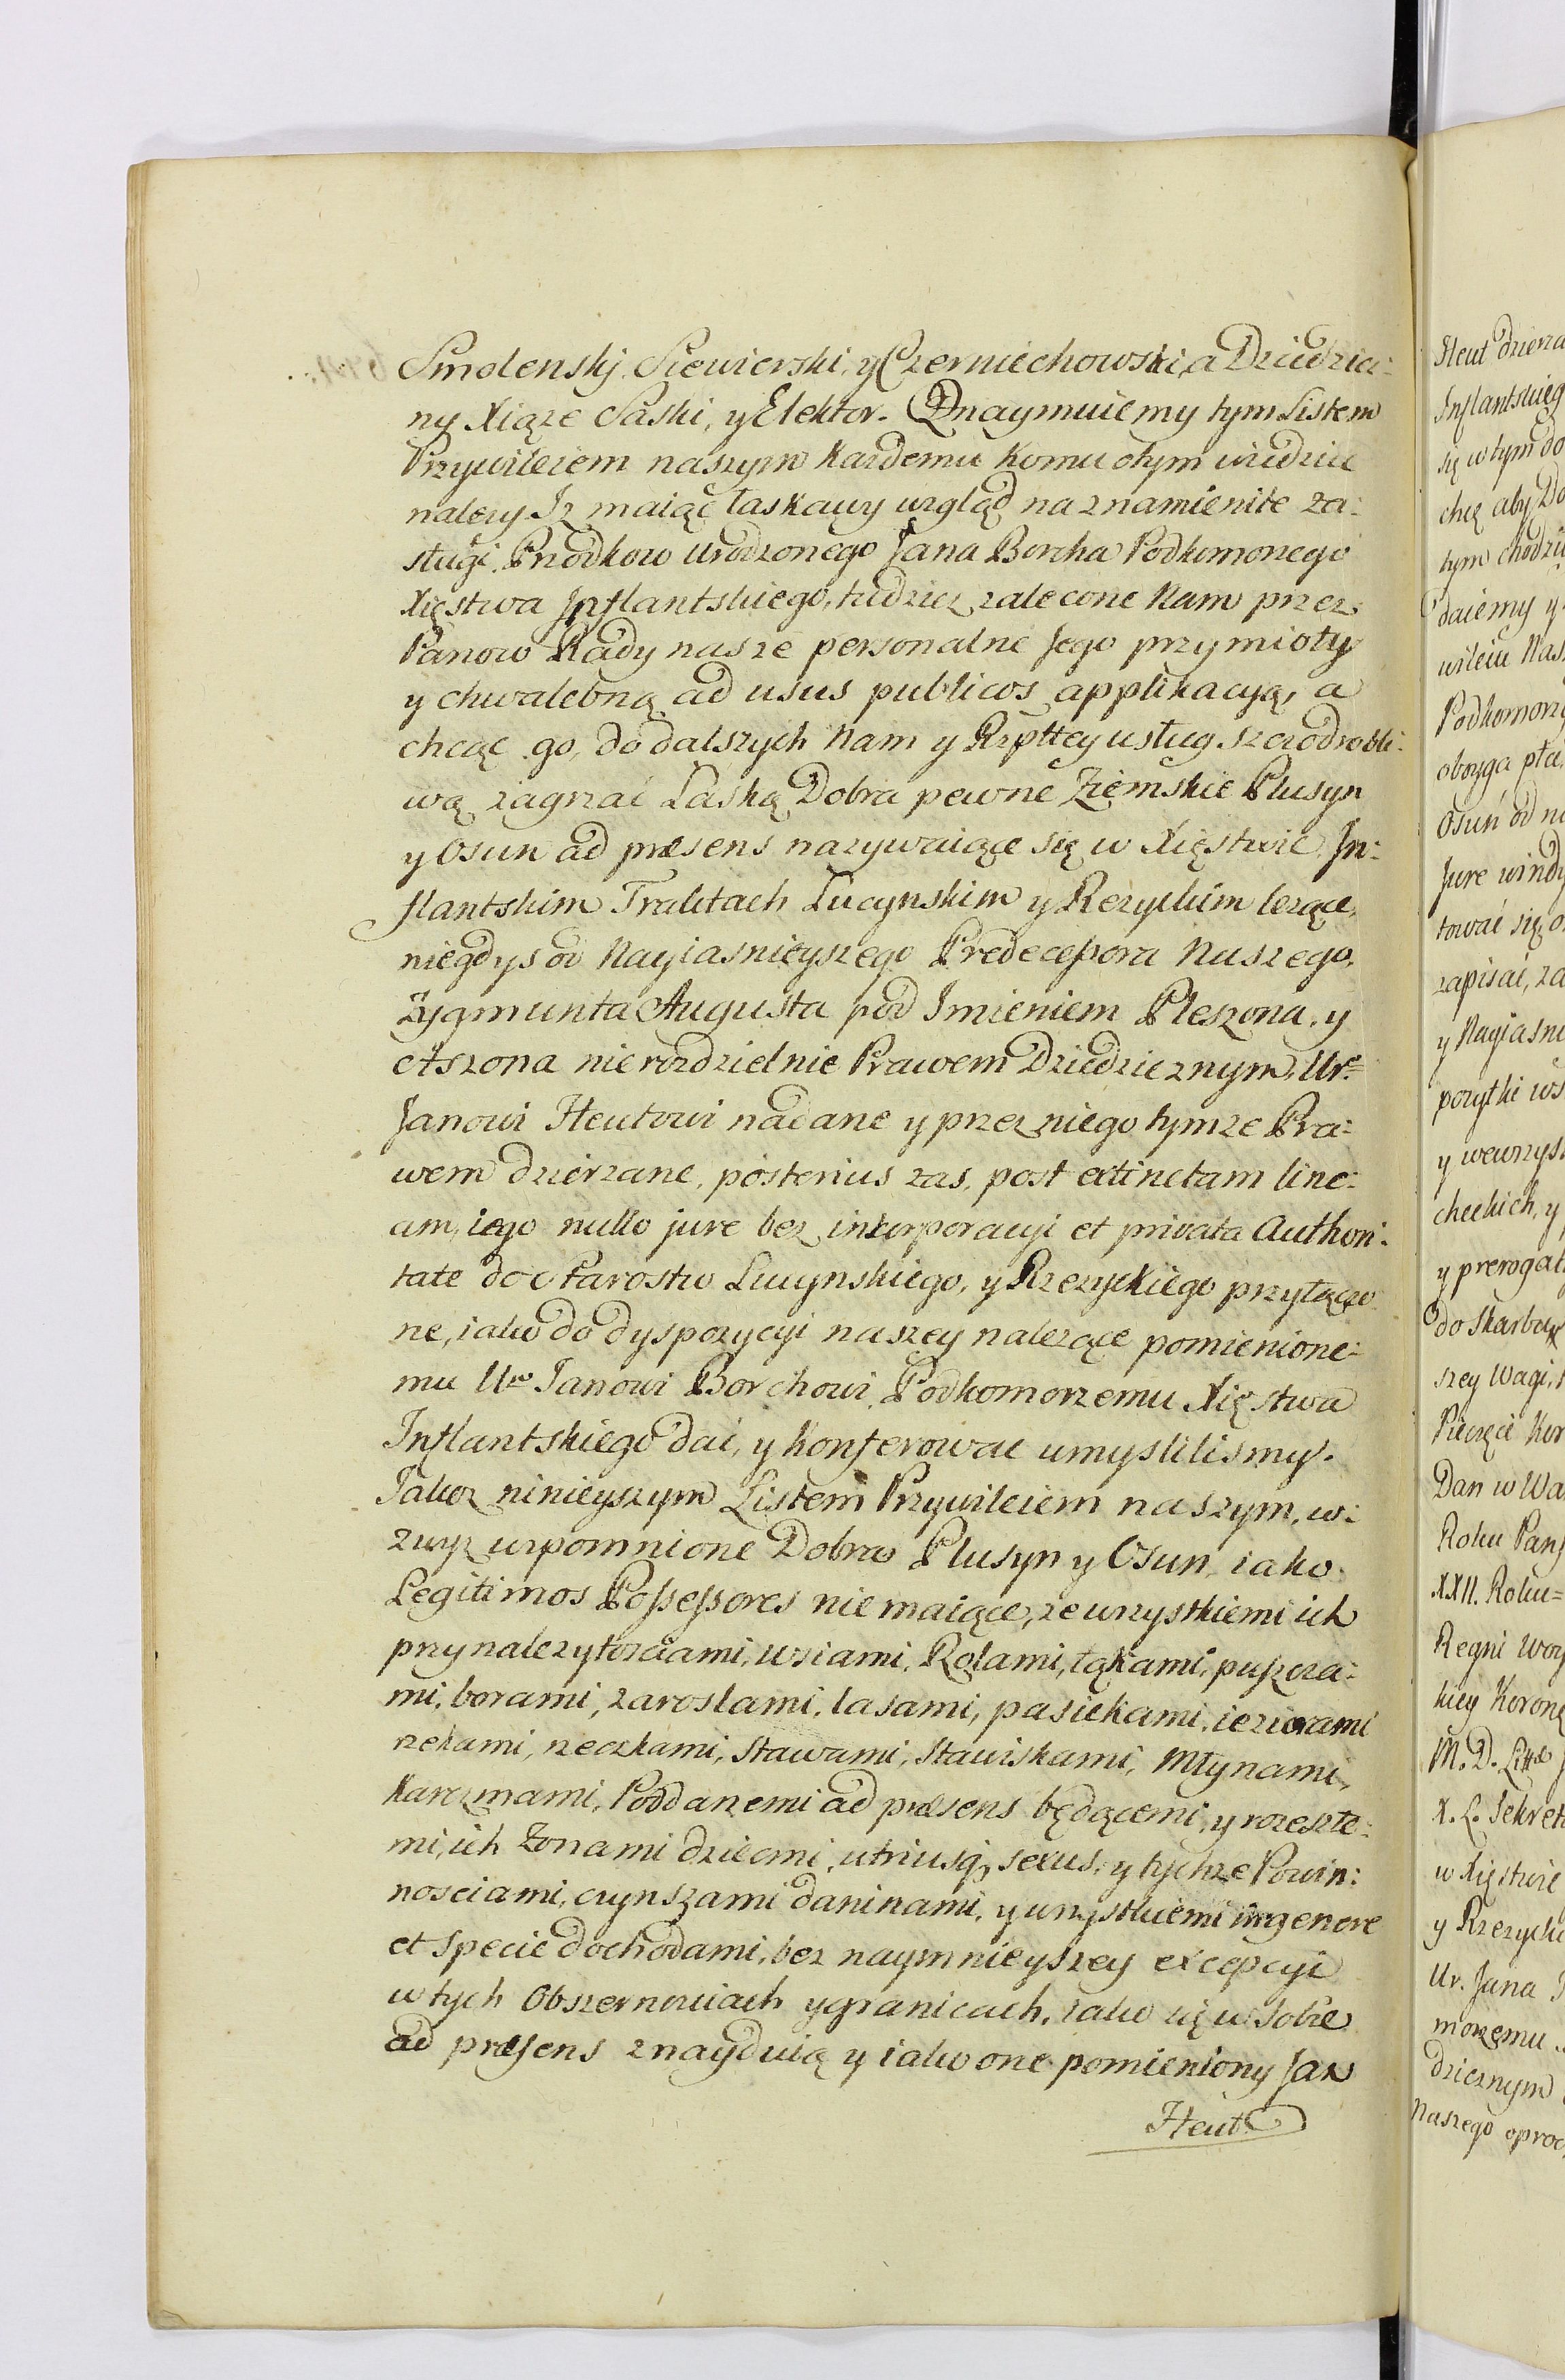 Smolenskj, Siewierski, y Czerniechowski, a Dziedzicz:
ny Xiąże Saski, y Elektor. Oznaymuiemy tym Listem
Przywileiem naszym każdemu komu o tym wiedziec
nalezy Iz maiąc łaskawy wzgląd na znamienite za:
sługi Przodkow urodzonego Jana Borcha Podkomorzego
Xięstwa Jnflantskiego, tudziez zalecone Nam przez
Panow Rady nasze personalne Jego przymioty
y chwalebną ad usus publicos applikacyą, a
chcąc go do dalszych Nam y Rzpltey usług szczodrobli:
wą zagrzać Łaską Dobra pewne Ziemskie Plusyn
y Osun ad præsens nazywaiące się w Xięstwie Jn:
flantskim Traktach Lucynskim y Rezyckim lezące,
niegdys od Nayiasnieyszego Predecessora Naszego
Zygmunta Augusta pod Imieniem Pleszona, y
Aszona nierozdzielnie Prawem Dziedzicznym, Ur:
Janowi Heutowi nadane y przez niego tymze Pra:
wem dzierzane, posterius zas, post extinctam line:
am, iego nullo jure bez inkorporacyi et privata Authori:
tate do Starostw Lucynskiego, y Rzezyckiego przyłączo
ne, iako do dyspozycyi naszey nalezące pomienione:
mu Uro Janowi Borchowi Podkomorzemu Xięstwa
Inflantskiego dać, y konferowac umyslilismy.
Jakoz ninieyszym Listem Przywileiem naszym, w:
zwyz wspomnione Dobra Plusyn y Osun, iako
Legitimos Possessores nie maiące, ze wszystkiemi ich
przynalezytosciami, wsiami, Rolami, łąkami, puszcza:
mi, borami, zaroslami, lasami, pasiekami, ieziorami
rzekami, rzeczkami, stawami, stawiskami, Młynami,
karczmami, Poddanemi ad præsens będącemi, y rozeszłe:
mi, ich Zonami dziecmi, utriusq, sexus, y tychze Powin:
nosciami, czynszami daninami, y wszystkiemi in genere
et specie dochodami, bez naymnieyszey excepcyi
w tych Obszernosciach y granicach, iako się w sobie
ad præsens znayduią y iako one pomieniony Jan
Heut
Heut dzierza
Inflantskieg
się w tym do
chcę aby Do
tym chodzi
daiemy y
wileiu Nas
Podkomorz
oboyga pła
Osuń od n
Jure windy
tować się o
zapisać, za
y Nayiasni
pozytki ws
y wewszys
checkich, y
y prerogat
do Skarbu
szey Wagi,
Pieczęć Kor
Dan w Wa
Roku Pans
XXII. Roku=
Regni woy
kiey Korong
M. D. Litt
X. L. Sekret
w Xięstwie
y Rzezycki
Ur. Jana
morzemu
dzicznym
naszego oproc